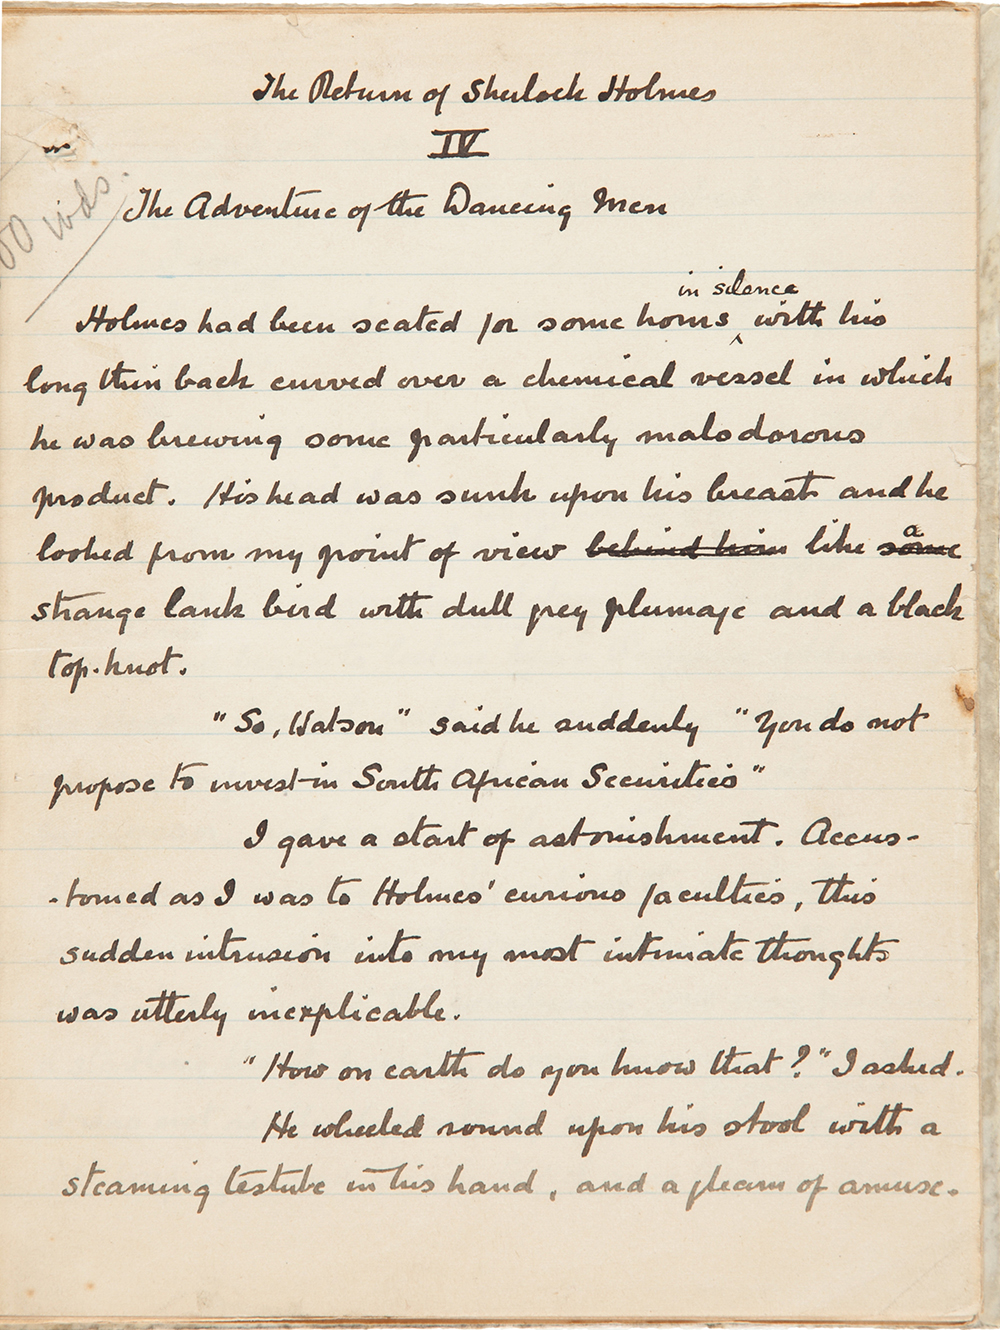 The Return of Sherlock Holmes
IV
The Adventure of the Dancing Men
wds.
in silence
Holmes had been seated for some hours ‸ with his
long thin back curved over a chemical vessel in which
he was brewing some particularly malodorous
product. His head was sunk upon his breast and he
looked from my point of view behind him like some a
strange lank bird with dull grey plumage and a black
top-knot.
"So, Watson" said he suddenly "You do not
propose to invest in South African Securities"
I gave a start of astonishment. Accus-
-tomed as I was to Holmes' curious faculties, this
sudden intrusion into my most intimate thoughts
was utterly inexplicable.
"How on earth do you know that?" I asked.
He wheeled round upon his stool with a
steaming testube in his hand, and a gleam of amuse-